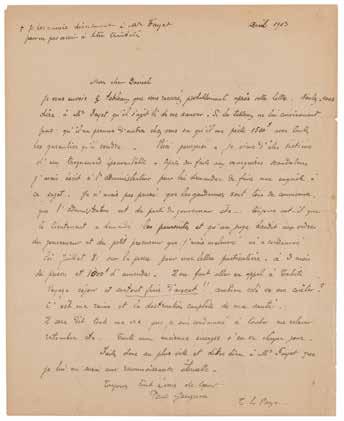 + je les envoie directement à Mr Fayet
pour ne pas avoir à être
Avril 1903
Mon cher Daniel
Je vous envoie tableaux que vous recevrez probablement après cette lettre. Voulez-vous
dire à Mr Fayet qu'il s'agit de me sauver. Si les tableaux ne lui conviennent
pas qu'il en prenne d'autres chez vous ou qu'il me prête 1500f avec toutes
les garanties qu'il voudra. Voici pourquoi - Je viens d'être victime
d'un épouvantable - Après des faits aux Marquises scandaleux
j'avais écrit à l'administrateur pour lui demander de faire une enquête à
ce sujet. Je n'avais pas pensé que les gendarmes sont tous de connivence,
que l'administrateur est du parti du gouverneur &a... Toujours est-il que
le lieutenant a demandé les poursuites et qu'un juge bandit aux ordres
du gouverneur et du petit procureur que j'avais malmené m'a condamné
loi Juillet 81 sur la presse pour une lettre particulière, à 3 mois
de prison et 1000f d'amende. Il me faut aller en appel à Tahiti
Voyage séjour et surtout frais d'avocat!! combien cela va me coûter?
C'est ma ruine et la destruction complète de ma santé.
Il sera dit toute ma vie que je suis condamné à tomber me relever
retomber &a. Toute mon ancienne énergie s'en va chaque jour.
Faites donc au plus vite et dites bien à Mr Fayet que
je lui en aurai une reconnaissance éternelle.
Toujours tout à vous de cœur
Paul Gauguin
T. S.